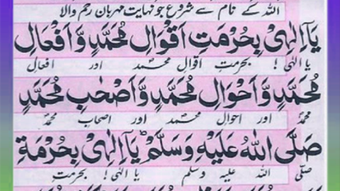 اللہ کے نام سے شروع جو نہایت مہربان رحم والا
يَآ اِلٰهِىْ بِحُرْمَتِ اَقْوَالِ مُحَمَّدٍ وَّ اَفْعَالِ
یا الٰہی ! بحرمتِ اقوال محمد اور افعال
مُحَمَّدٍ وَّ اَحْوَالِ مُحَمَّدٍ وَّ اَصْحٰبِ مُحَمَّدٍ
محمد اور احوال محمد اور اصحاب محمد
صَلَّى اللهُ عَلَيْهِ وَسَلَّمَ ؕ يَآ اِلٰهِىْ بِحُرْمَةِ
صلی اللہ علیہ وسلم یا الٰہی ! بحرمتِ